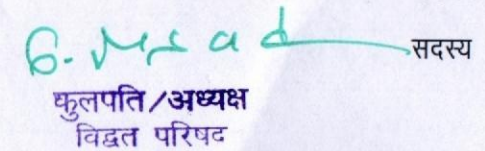 सदस्य
कुलपति/अध्यक्ष
विद्वत परिषद